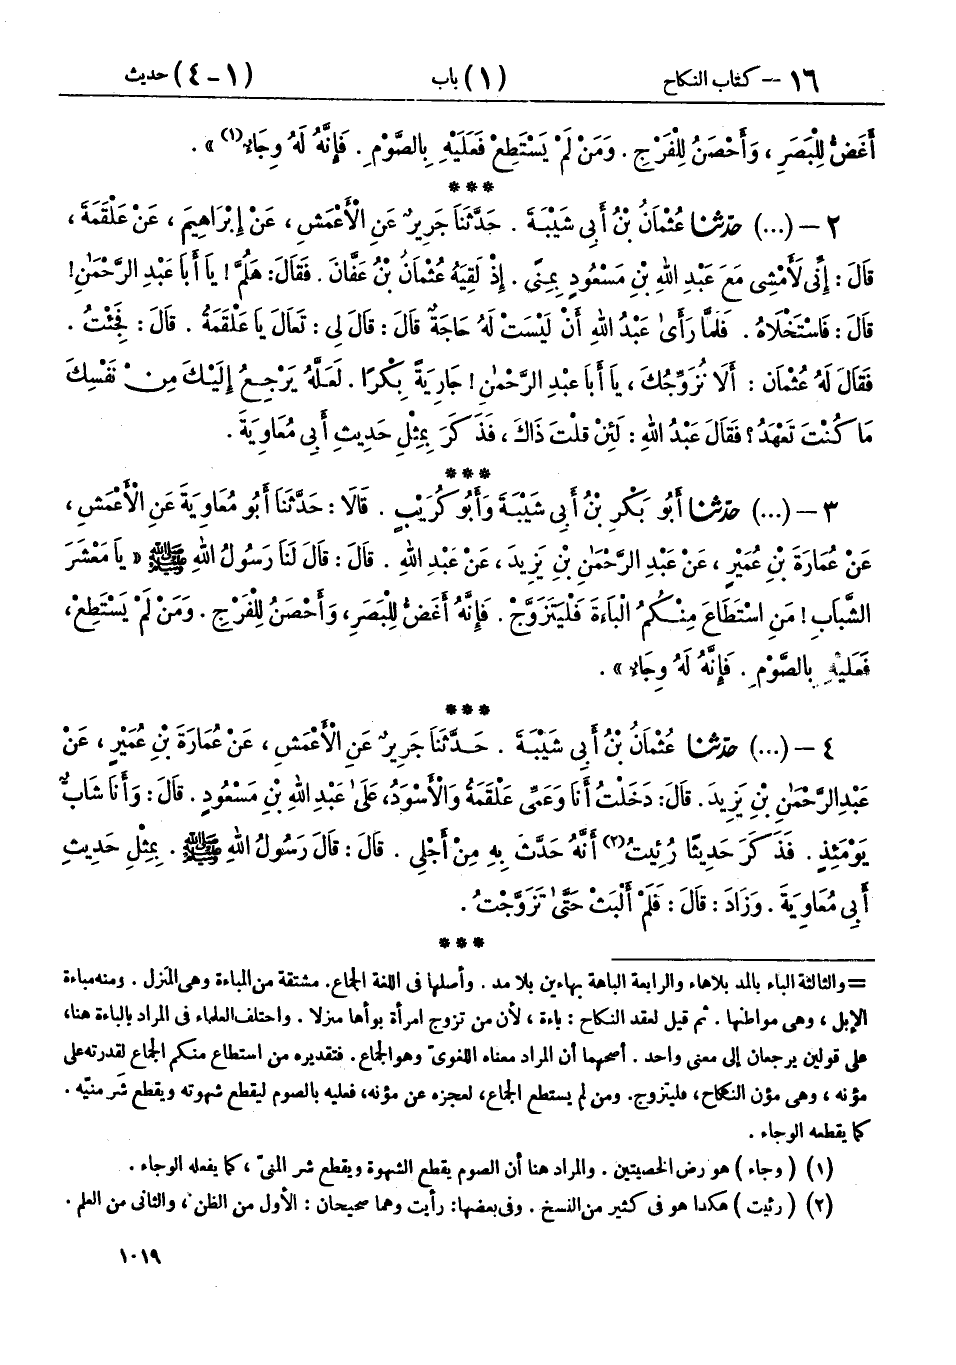 ١٦ — كتاب النكاح (١) باب (١ - ٤) حديث
أَغَضُّ لِلْبَصَرِ ، وَأَحْصَنُ لِلْفَرْجِ . وَمَنْ لَمْ يَسْتَطِعْ فَعَلَيْهِ بِالصَّوْمِ . فَإِنَّهُ لَهُ وِجَاءٌ(١) » .
***
٢ — (...) حدّثنا عُثْمَانُ بْنُ أَبِي شَيْبَةَ . حَدَّثَنَا جَرِيرٌ عَنِ الْأَعْمَشِ ، عَنْ إِبْرَاهِيمَ ، عَنْ عَلْقَمَةَ ،
قَالَ : إِنِّي لَأَمْشِي مَعَ عَبْدِ اللهِ بْنِ مَسْعُودٍ بِمِنًى . إِذْ لَقِيَهُ عُثْمَانُ بْنُ عَفَّانَ . فَقَالَ : هَلُمَّ ! يَا أَبَا عَبْدِ الرَّحْمٰنِ !
قَالَ : فَاسْتَخْلَاهُ . فَلَمَّا رَأَىٰ عَبْدُ اللهِ أَنْ لَيْسَتْ لَهُ حَاجَةٌ قَالَ : قَالَ لِي : تَعَالَ يَا عَلْقَمَةُ . قَالَ : فَجِئْتُ .
فَقَالَ لَهُ عُثْمَانُ : أَلَا نُزَوِّجُكَ ، يَا أَبَا عَبْدِ الرَّحْمٰنِ ! جَارِيَةً بِكْرًا . لَعَلَّهُ يَرْجِعُ إِلَيْكَ مِنْ نَفْسِكَ
مَا كُنْتَ تَعْهَدُ ؟ فَقَالَ عَبْدُ اللهِ : لَئِنْ قلتَ ذَاكَ ، فَذَكَرَ بِمِثْلِ حَدِيثِ أَبِي مُعَاوِيَةَ .
***
٣ — (...) حدّثنا أَبُو بَكْرِ بْنُ أَبِي شَيْبَةَ وَأَبُو كُرَيْبٍ . قَالَا : حَدَّثَنَا أَبُو مُعَاوِيَةَ عَنِ الْأَعْمَشِ ،
عَنْ عُمَارَةَ بْنِ عُمَيْرٍ ، عَنْ عَبْدِ الرَّحْمٰنِ بْنِ يَزِيدَ ، عَنْ عَبْدِ اللهِ . قَالَ : قَالَ لَنَا رَسُولُ اللهِ ﷺ « يَا مَعْشَرَ
الشَّبَابِ ! مَنِ اسْتَطَاعَ مِنْكُمُ الْبَاءَةَ فَلْيَتَزَوَّجْ . فَإِنَّهُ أَغَضُّ لِلْبَصَرِ ، وَأَحْصَنُ لِلْفَرْجِ . وَمَنْ لَمْ يَسْتَطِعْ ،
فَعَلَيْهِ بِالصَّوْمِ . فَإِنَّهُ لَهُ وِجَاءٌ » .
***
٤ — (...) حدّثنا عُثْمَانُ بْنُ أَبِي شَيْبَةَ . حَدَّثَنَا جَرِيرٌ عَنِ الْأَعْمَشِ ، عَنْ عُمَارَةَ بْنِ عُمَيْرٍ ، عَنْ
عَبْدِ الرَّحْمٰنِ بْنِ يَزِيدَ . قَالَ : دَخَلْتُ أَنَا وَعَمِّي عَلْقَمَةُ وَالْأَسْوَدُ ، عَلَىٰ عَبْدِ اللهِ بْنِ مَسْعُودٍ . قَالَ : وَأَنَا شَابٌّ
يَوْمَئِذٍ . فَذَكَرَ حَدِيثًا رُئِيتُ(٢) أَنَّهُ حَدَّثَ بِهِ مِنْ أَجْلِي . قَالَ : قَالَ رَسُولُ اللهِ ﷺ . بِمِثْلِ حَدِيثِ
أَبِي مُعَاوِيَةَ . وَزَادَ : قَالَ : فَلَمْ أَلْبَثْ حَتَّىٰ تَزَوَّجْتُ .
***
= والثالثة الباء بالمد بلا هاء والرابعة الباهة بهاءين بلا مد . وأصلها في اللغة الجماع . مشتقة من المباءة وهي المنزل . ومنه مباءة
الإبل ، وهي مواطنها . ثم قيل لعقد النكاح : باءة ، لأن من تزوج امرأة بوأها منزلا . واختلف العلماء في المراد بالباءة هنا،
على قولين يرجعان إلى معنى واحد . أصحهما أن المراد معناه اللغويّ وهو الجماع . فتقديره من استطاع منكم الجماع لقدرته على
مؤنه ، وهي مؤن النكاح ، فليتزوج. ومن لم يستطع الجماع ، لعجزه عن مؤنه، فعليه بالصوم ليقطع شهوته ويقطع شر منيّه .
كما يقطعه الوجاء .
(١) ( وجاء ) هو رض الخصيتين . والمراد هنا أن الصوم يقطع الشهوة ويقطع شر المنيّ ، كما يفعله الوجاء .
(٢) ( رئيت ) هكذا هو في كثير من النسخ . وفي بعضها : رأيت وهما صحيحان : الأول من الظن ، والثاني من العلم .
١٠١٩